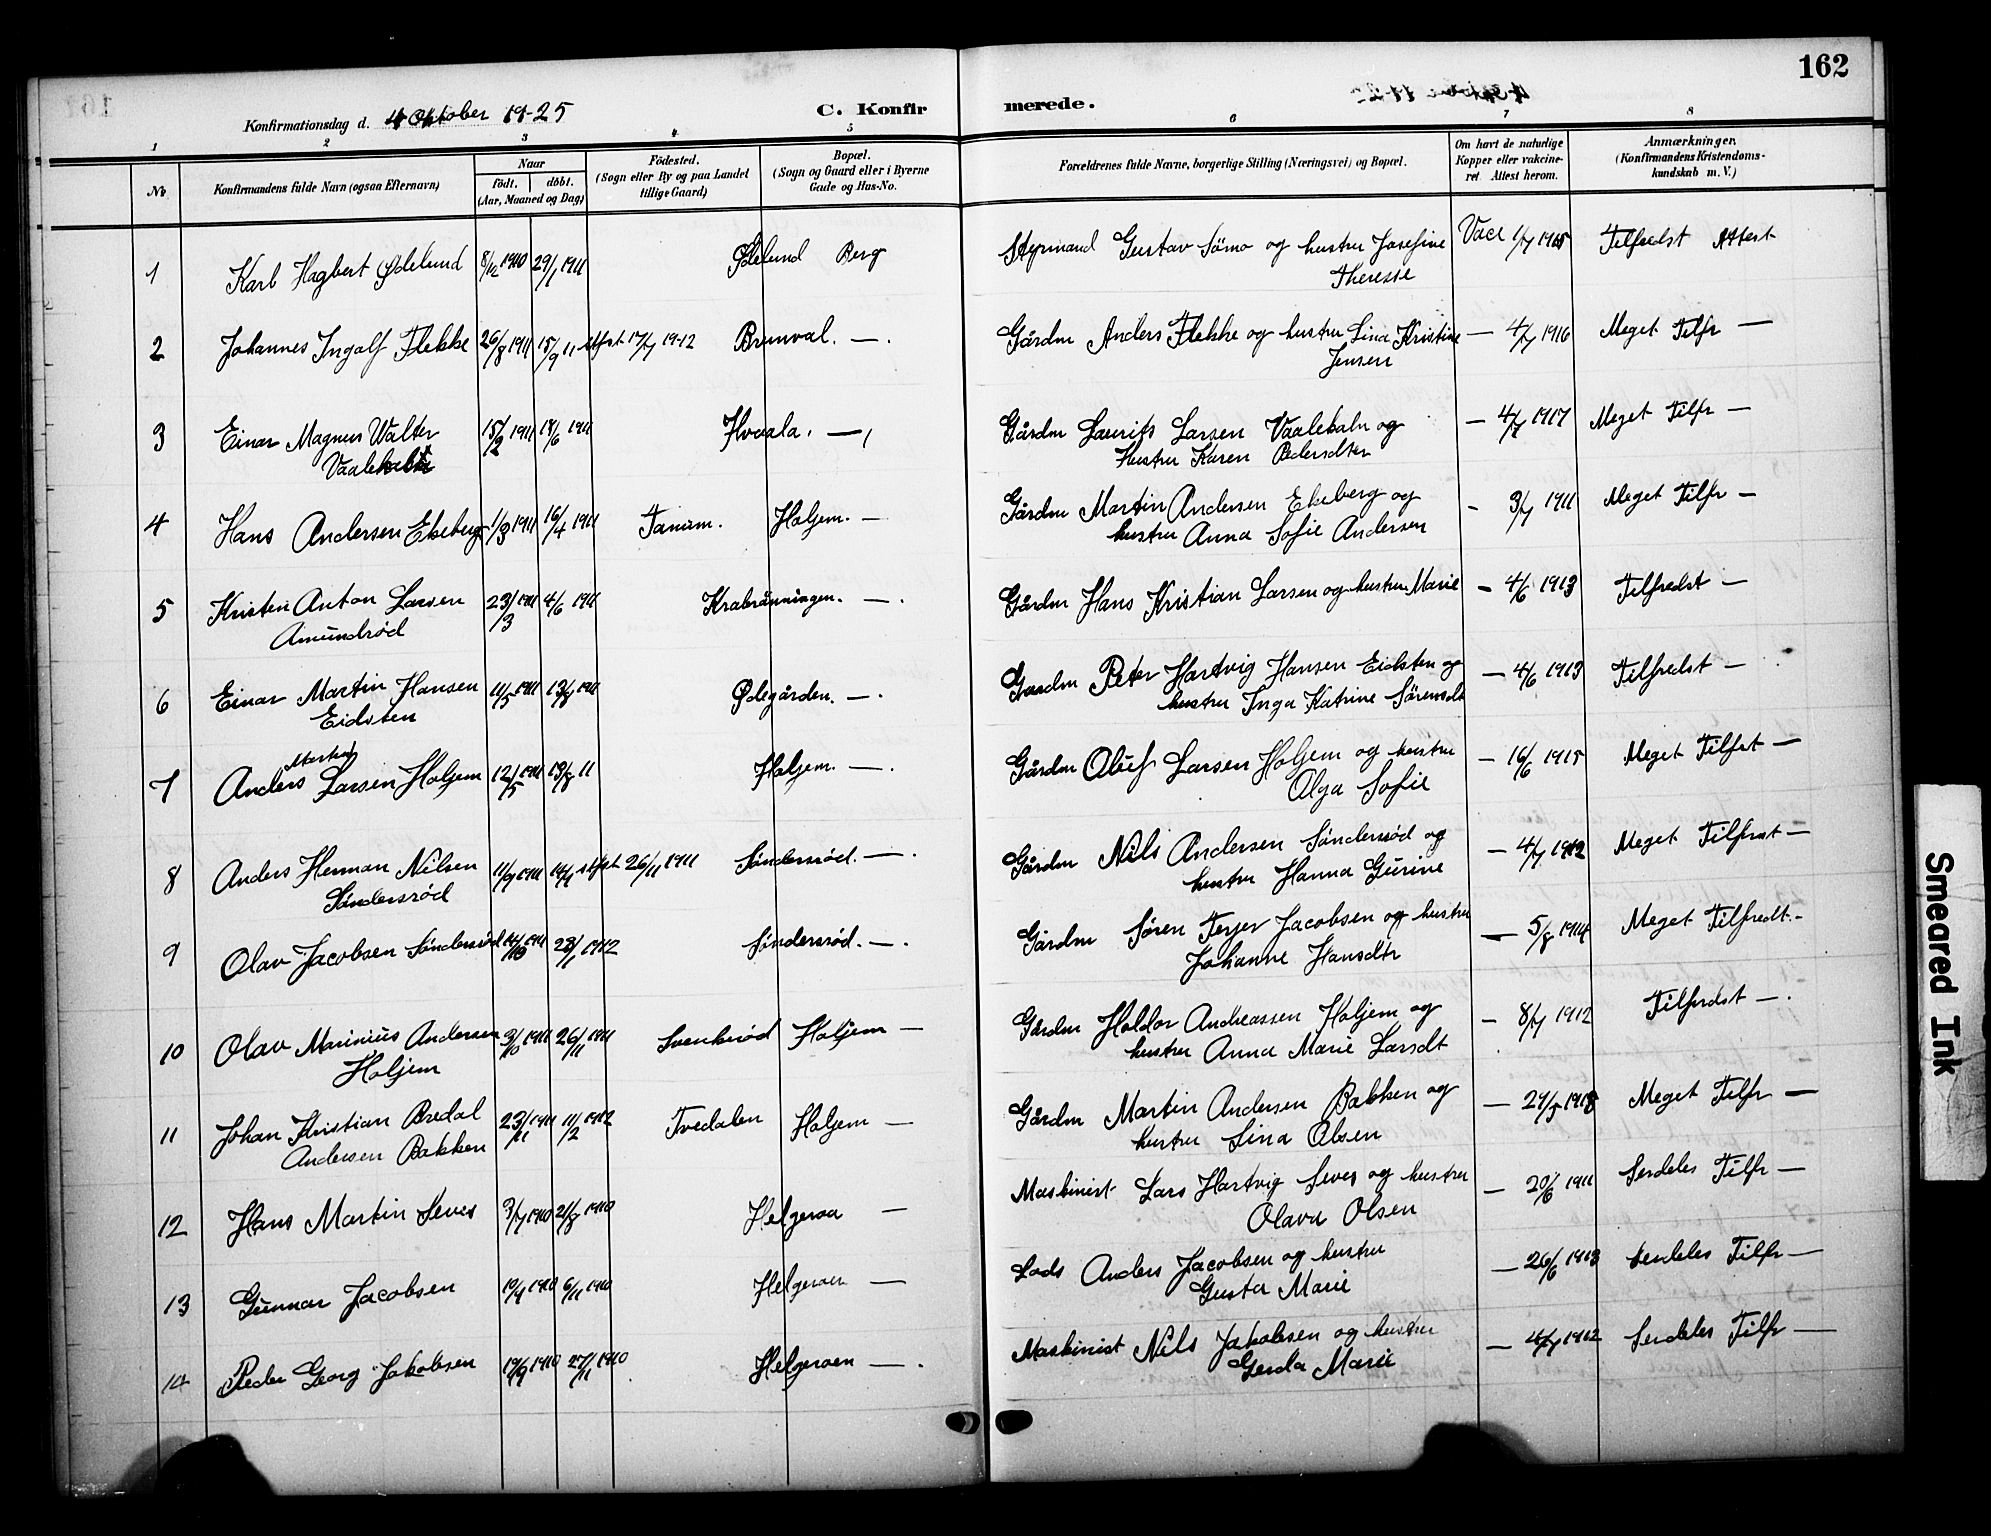 162
Konfirmationsdag d. 4 Oktober 1925
C. Konfirmerede.
1 2 3 4 5 6 7 8
No
Konfirmandens fulde Navn (ogsaa Efternavn)
Naar
födt. döbt.
(Aar, Maaned og Dag)
Födested.
(Sogn eller By og paa Landet
tillige Gaard)
Bopæl.
(Sogn og Gaard eller i Byerne
Gade og Hus-No.
Forældrenes fulde Navne, borgerlige Stilling (Næringsvei) og Bopæl.
Om havt de naturlige
Kopper eller vakcine-
ret. Attest herom.
Anmærkninger.
(Konfirmandens Kristendoms-
kundskab m. V.)
1 Karl Hagbert Ødelund 8/12 1910 29/1 1911 Ødelund Berg Styrmand Gustav Sömo og hustru Josefine Vacc 1/7 1915 Tilfredst Attest
Therese
2 Johannes Ingolf Flekke 26/8 1911 15/9 11 attest 17/7 1912 Brunval. — . Gårdm Anders Flekke og hustru Lina Kristine — 4/7 1916 Meget Tilfr —
Jensen
3 Einar Magnus Walter 15/2 1911 18/6 1911 Hvaala. — , Gårdm Laurits Larsen Vaalekaln og — 4/7 1917 Meget Tilfr —
Vaalekaln Hustru Karen Pedersdter
4 Hans Andersen Ekeberg 1/3 1911 16/4 1911 Tanum. Holjem. — Gårdm Martin Andersen Ekeberg og - 3/7 1911 Meget Tilfr —
hustru Anna Sofie Andersen
5 Kristen Anton Larsen 23/3 1911 4/6 1911 Krabrönningen. — . Gårdm Hans Kristian Larsen og hustru Marie — 4/6 1913 Tilfredst —
Amundröd
6 Einar Martin Hansen 11/5 1911 13/8 1911 Ødegården. — . Gaardm Peter Hartvig Hansen Eidsten og — 4/6 1913 Tilfredst —
Eidsten hustru Inga Katrine Sörensdt
7 Anders Larsen Holjem 12/5 1911 13/8 11 Holjem. — . Gårdm Oluf Larsen Holjem og hustru — 16/6 1915 Meget Tilfrt —
Olga Sofie
8 Anders Herman Nilsen 11/7 1911 attest 26/11 1911 Sönderröd. — . Gårdm Nils Andersen Sönderröd og — 4/7 1912 Meget Tilfrst —
Söndersröd hustru Hanna Gurine
9 Olav Jacobsen Söndersröd 14/10 1911 28/1 1912 Sönderröd. — . Gårdm Sören Terjer Jacobsen og hustru — 5/8 1914 Meget Tilfredt. -
Johanne Hansdtr
10 Olav Marinius Andersen 3/10 1911 26/11 1911 Svenkeröd Holjem — Gårdm Holdor Andreassen Holjem og — 8/7 1912 Tilfredst — .
Holjem hustru Anna Marie Larsdt
11 Johan Kristian Bredal 23/11 1911 11/2 1912 Tvedalen Holjem — Gårdm Martin Andersen Bakken og — 1918 Meget Tilfr —
Andersen Bakken hustru Lina Olsen
12 Hans Martin Seves 3/7 1910 21/8 1910 Helgeroa — Maskinist Lars Hartvig Seves og hustru — 20/6 1911 Serdeles Tilfr —
Olava Olsen
13 Gunnar Jacobsen 6/11 1910 Helgeroen — Lods Anders Jacobsen og hustru — 26/6 1913 Serdeles Tilfr —
Gusta Marie
14 Peder Georg Jakobsen 19/9 1910 27/11 1910 Helgeroen — . Maskinist Nils Jakobsen og hustru — 4/7 1912 Serdeles Tilfr —
Gerda Marie
Smeared Ink